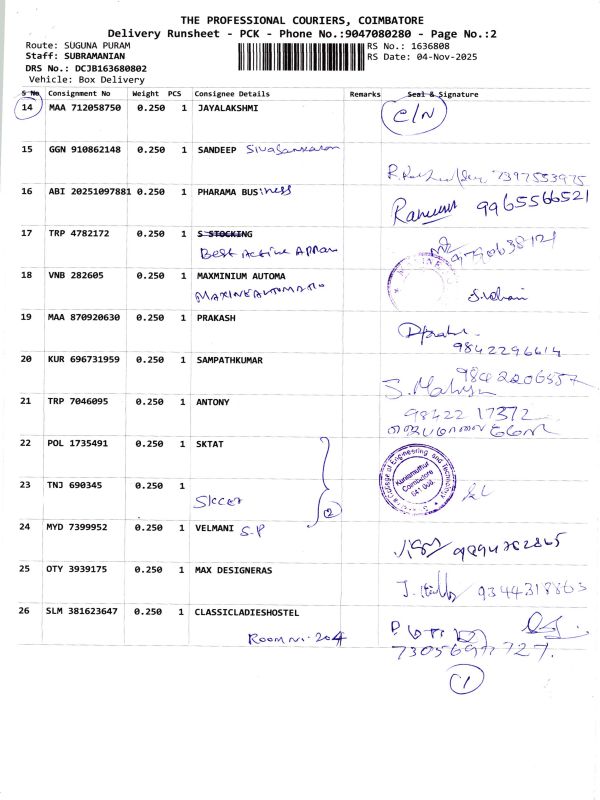 THE PROFESSIONAL COURIERS, COIMBATORE
Delivery Runsheet - PCK - Phone No.:9047080280 - Page No.:2
Route: SUGUNA PURAM RS No.: 1636808
Staff: SUBRAMANIAN RS Date: 04-Nov-2025
DRS No.: DCJB163680802
Vehicle: Box Delivery
S No Consignment No Weight PCS Consignee Details Remarks Seal & Signature
14 MAA 712058750 0.250 1 JAYALAKSHMI C/N
15 GGN 910862148 0.250 1 SANDEEP Sivasankaran
7397553975
16 ABI 20251097881 0.250 1 PHARAMA BUSiness
9965566521
17 TRP 4782172 0.250 1 S STOCKING
Best Active
18 VNB 282605 0.250 1 MAXMINIUM AUTOMA
19 MAA 870920630 0.250 1 PRAKASH
9842296614
20 KUR 696731959 0.250 1 SAMPATHKUMAR
21 TRP 7046095 0.250 1 ANTONY
98422 17372
22 POL 1735491 0.250 1 SKTAT
College of Engineering and Technology
Kuniamuthur
Coimbatore
641 008.
23 TNJ 690345 0.250 1
Skcet
2
24 MYD 7399952 0.250 1 VELMANI S.P
25 OTY 3939175 0.250 1 MAX DESIGNERAS
9344318863
26 SLM 381623647 0.250 1 CLASSICLADIESHOSTEL
Room No. 204
1